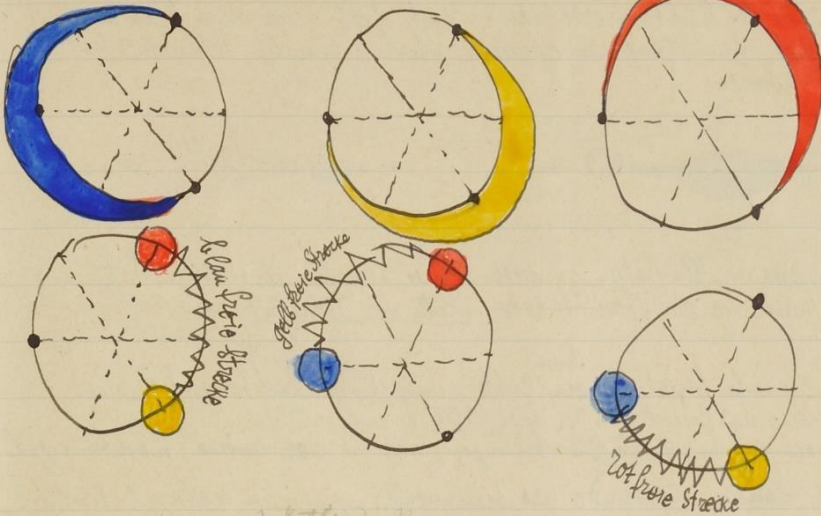 blau freie Strecke
gelb freie Strecke
rot freie Strecke